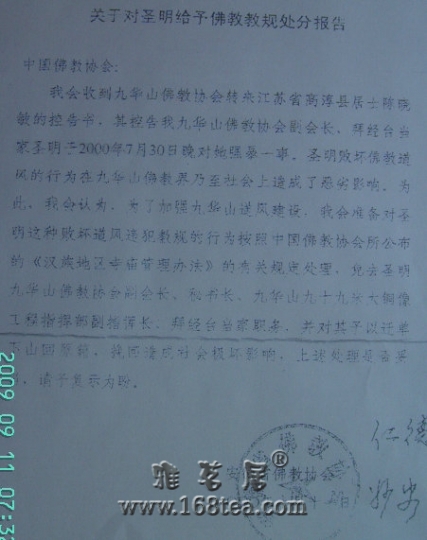 关于对圣明给予佛教教规处分报告
中国佛教协会:
我会收到九华山佛教协会转来江苏省高淳县居士陈晓
敏的控告书,其控告我九华山佛教协会副会长、拜经台当
家圣明于2000年7月30日晚对她强暴一事。圣明败坏佛教道
风的行为在九华山佛教界乃至社会上造成了恶劣影响。为
此,我会认为,为了加强九华山道风建设,我会准备对圣
明这种败坏道风违犯教规的行为按照中国佛教协会所公布
的《汉族地区寺庙管理办法》的有关规定处理,免去圣明
九华山佛教协会副会长、秘书长、九华山九十九米大铜像
工程指挥部副指挥长、拜经台当家职务,并对其予以迁单
下山回原籍,造成社会极坏影响,上述处理是否妥
请予复示为盼。
仁德
佛教协会
雅茗居®
www.168tea.com
2009 09 11 07:3